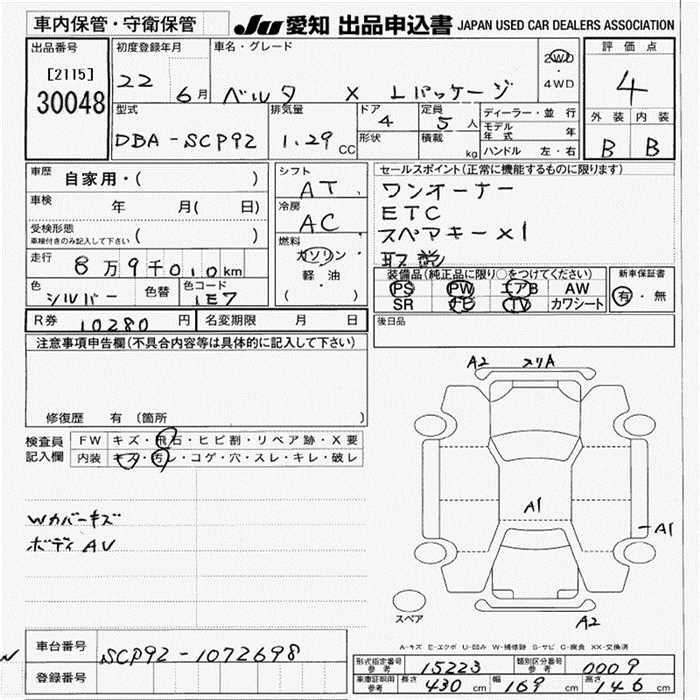 車内保管・守衛保管
JU 愛知 出品申込書 JAPAN USED CAR DEALERS ASSOCIATION
出品番号
[2115]
30048
初度登録年月
22 6月
車名・グレード
ベルタ X Lパッケージ
2WD
4WD
評価点
4
外装 内装
B B
型式
DBA-SCP92
排気量
1.29 CC
ドア
4
形状
定員
5 人
積載
kg
ディーラー・並行
モデル年式 年
ハンドル 左・右
車歴 自家用・( )
車検 年 月( 日)
受検形態
車検付きのみ記入して下さい ( )
走行 8万9千010km
色 シルバー 色替 色コード 1E7
シフト
AT
冷房
AC
燃料
ガソリン
軽・油
( )
セールスポイント(正常に機能するものに限ります)
ワンオーナー
ETC
スペアキー×1
取説
装備品(純正品に限り○をつけてください)
PS PW エアB AW
SR ナビ TV カワシート
新車保証書
有・無
R券 10280 円 名変期限 月 日
後日品
注意事項申告欄(不具合内容等は具体的に記入して下さい)
修復歴 有 (箇所 )
検査員記入欄
FW キズ・飛石・ヒビ割・リペア跡・X要
内装 キズ・汚レ・コゲ・穴・スレ・キレ・破レ
Wカバーキズ
ボディAU
A2 スリA
A1
A1
A2
スペア
A-キズ E-エクボ U-凹み W-補修跡 S-サビ C-腐食 XX-交換済
車台番号 SCP92-1072698
登録番号
形式指定番号 参考 15223 類別区分番号 参考 0009
車庫証明用 参考 長さ 430 cm 幅 169 cm 高さ 146 cm